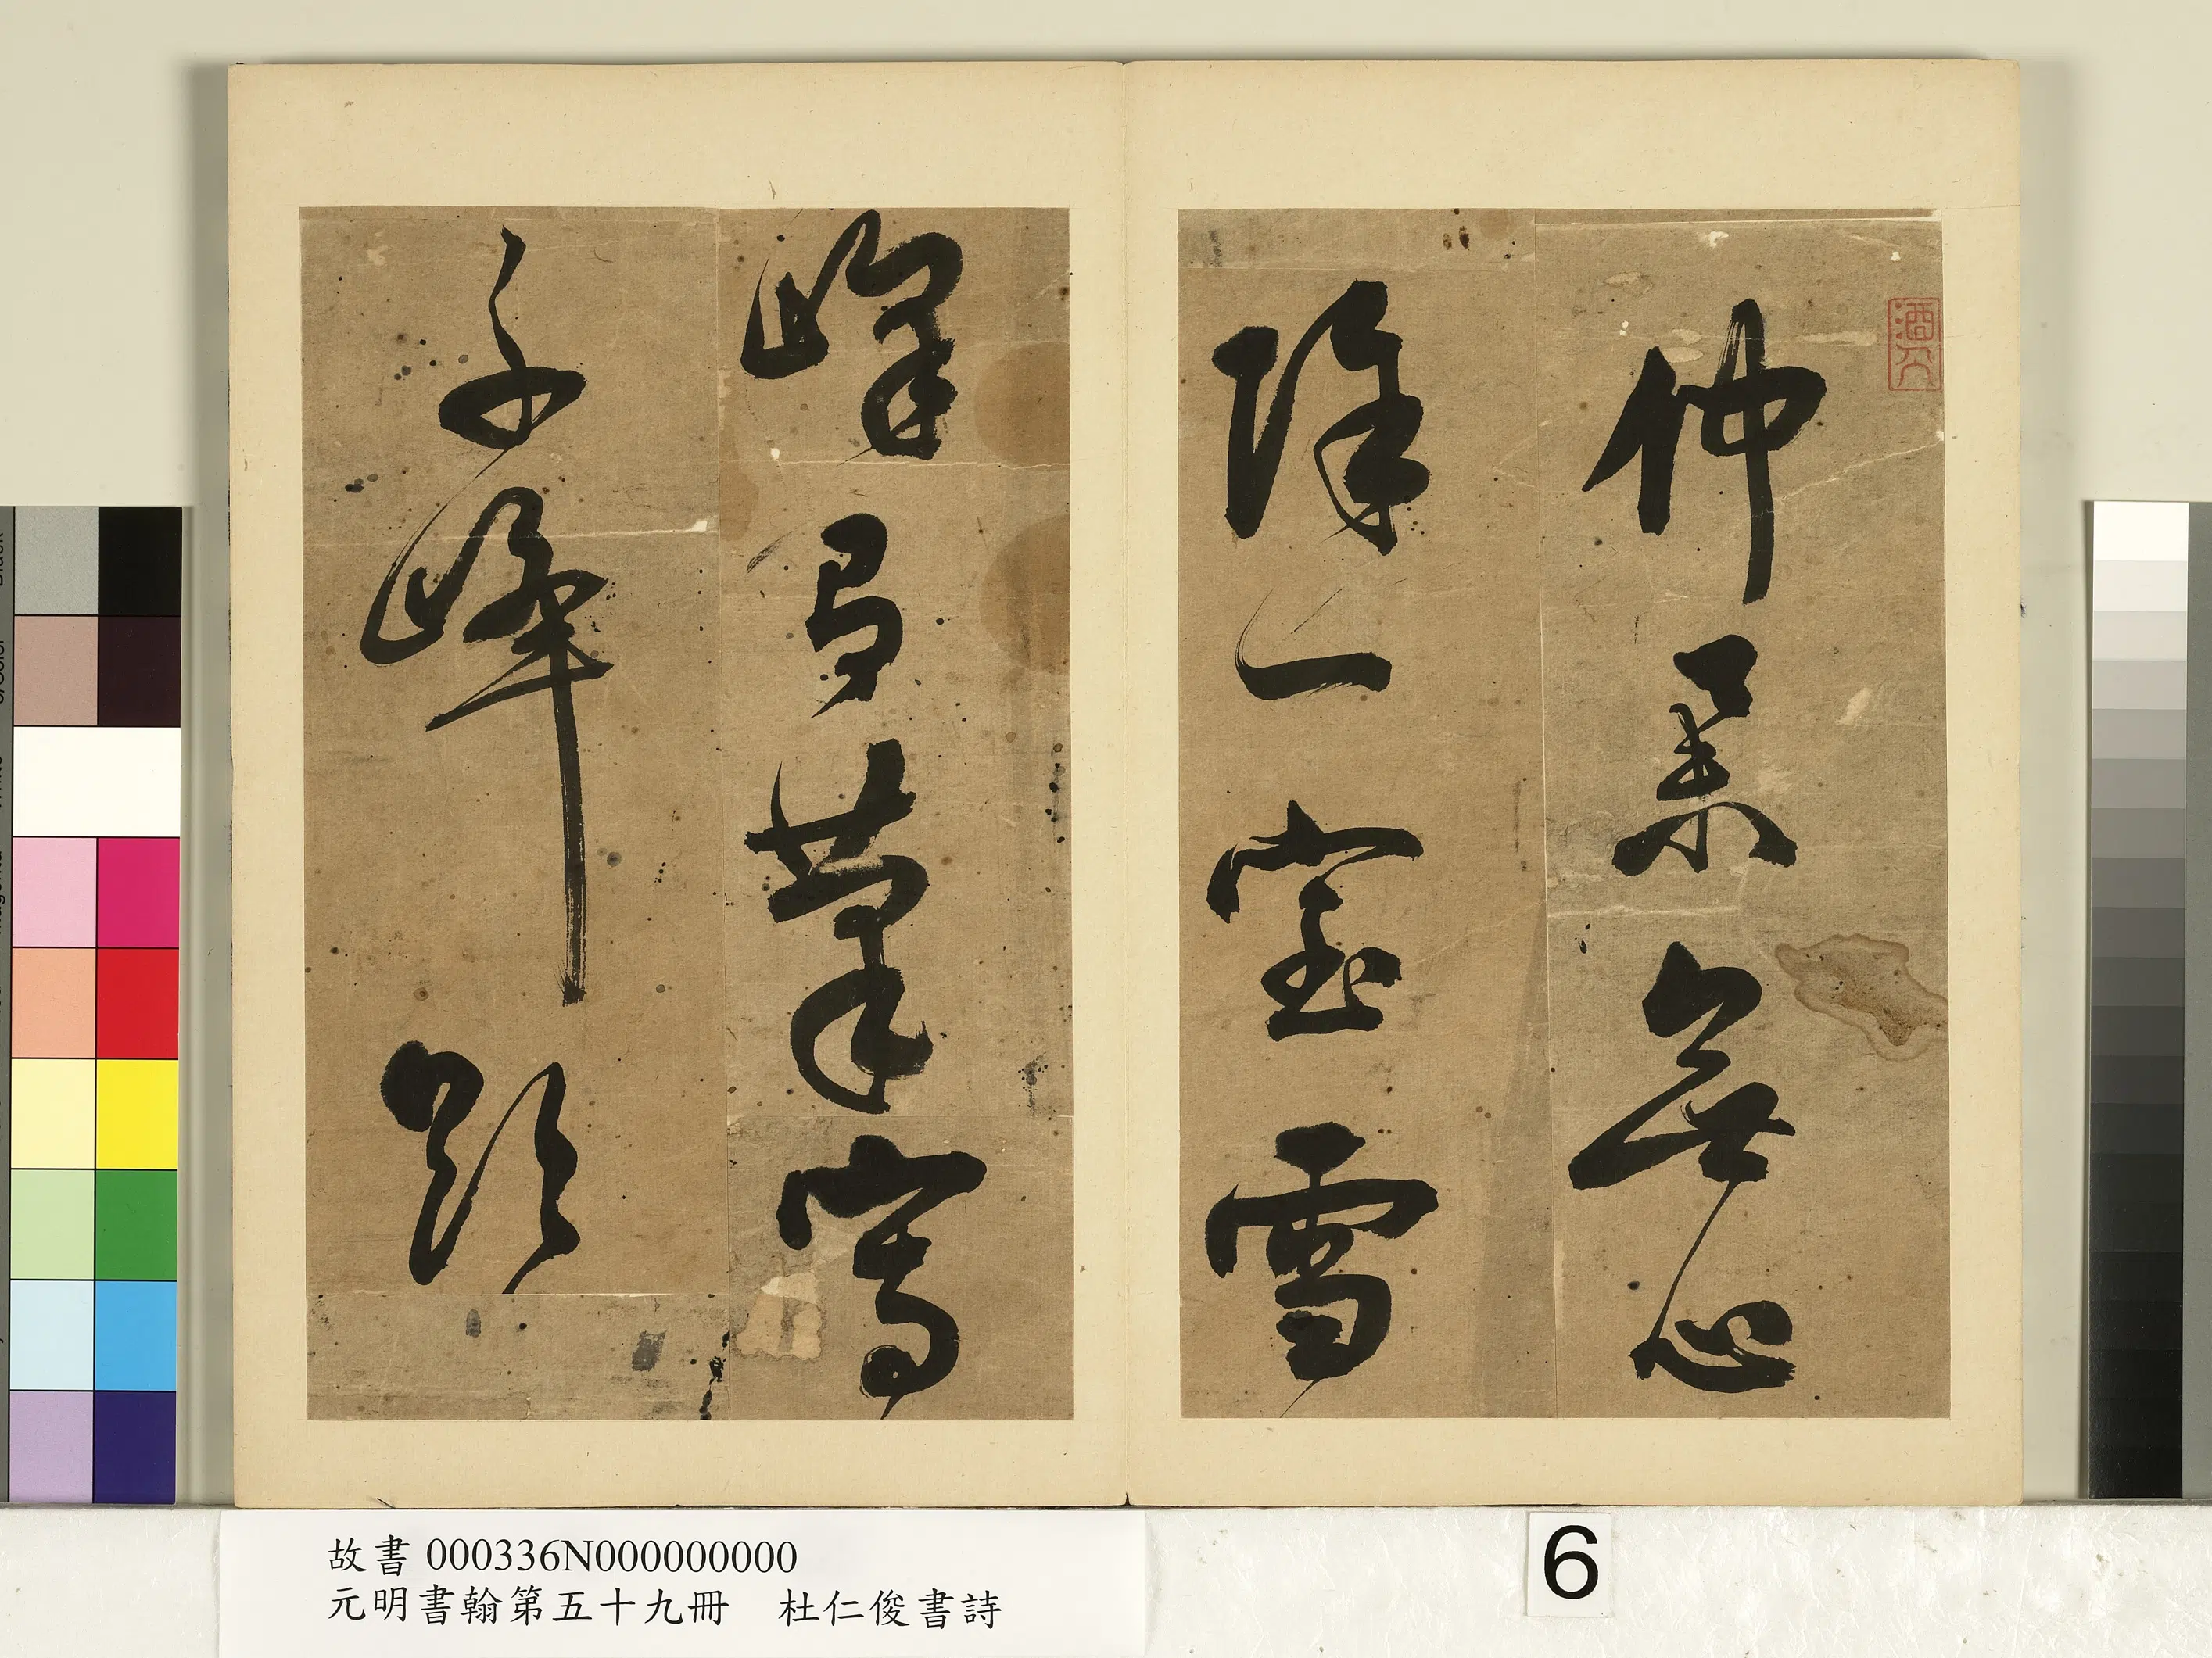 仲無心
除一室雪
峰筆寫
千峰
故書 000336N000000000
元明書翰第五十九冊 杜仁俊書詩
6